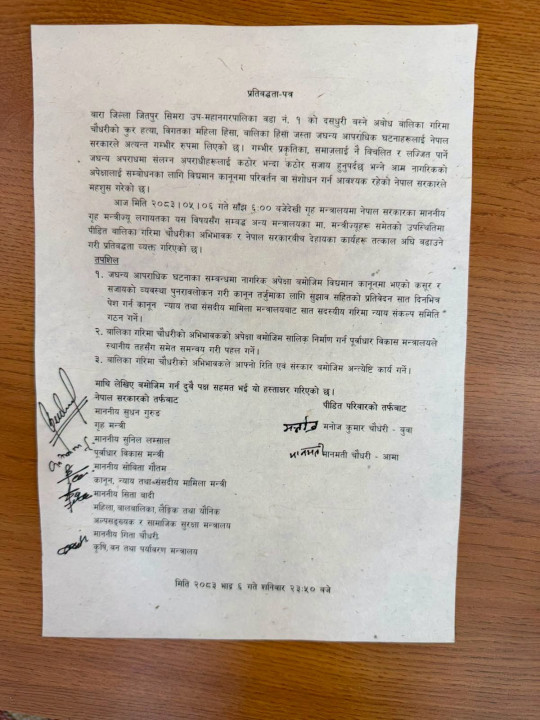 प्रतिवद्धता-पत्र
बारा जिल्ला जितपुर सिमरा उप-महानगरपालिका वडा नं. १ को दसधुरी वस्ने अवोध बालिका गरिमा
चौधरीको क्रुर हत्या, विगतका महिला हिंसा, बालिका हिंसा जस्ता जघन्य आपराधिक घटनाहरूलाई नेपाल
सरकारले अत्यन्त गम्भीर रुपमा लिएको छ। गम्भीर प्रकृतिका, समाजलाई नै विचलित र लज्जित पार्ने
जघन्य अपराधमा संलग्न अपराधीहरूलाई कठोर भन्दा कठोर सजाय हुनुपर्दछ भन्ने आम नागरिकको
अपेक्षालाई सम्बोधनका लागि विद्यमान कानूनमा परिवर्तन वा संशोधन गर्न आवश्यक रहेको नेपाल सरकारले
महशुस गरेको छ।
आज मिति २०८३।०५।०६ गते साँझ ६:०० बजेदेखी गृह मन्त्रालयमा नेपाल सरकारका माननीय
गृह मन्त्रीज्यू लगायतका यस विषयसँग सम्बद्ध अन्य मन्त्रालयका मा. मन्त्रीज्यूहरू समेतको उपस्थितिमा
पीडित बालिका गरिमा चौधरीका अभिभावक र नेपाल सरकारवीच देहायका कार्यहरू तत्काल अघि बढाउने
गरी प्रतिबद्धता व्यक्त गरिएको छ।
तपशिल
१. जघन्य आपराधिक घटनाका सम्वन्धमा नागरिक अपेक्षा वमोजिम विद्यमान कानूनमा भएको कसूर र
सजायको व्यवस्था पुनरावलोकन गरी कानून तर्जुमाका लागि सुझाव सहितको प्रतिवेदन सात दिनभित्र
पेश गर्न कानून न्याय तथा संसदीय मामिला मन्त्रालयबाट सात सदस्यीय गरिमा न्याय संकल्प समिति
गठन गर्ने।
२. बालिका गरिमा चौधरीको अभिभावकको अपेक्षा वमोजिम सालिक निर्माण गर्न पूर्वाधार विकास मन्त्रालयले
स्थानीय तहसँग समेत समन्वय गरी पहल गर्ने।
३. बालिका गरिमा चौधरीको अभिभावकले आफ्नो रिति एवं संस्कार वमोजिम अन्त्येष्टि कार्य गर्ने।
माथि लेखिए बमोजिम गर्न दुवै पक्ष सहमत भई यो हस्ताक्षर गरिएको छ।
नेपाल सरकारको तर्फबाट
पीडित परिवारको तर्फबाट
माननीय सुधन गुरुङ
गृह मन्त्री
मनोज कुमार चौधरी - बुवा
माननीय सुनिल लम्साल
पूर्वाधार विकास मन्त्री
मानमती मानमती चौधरी - आमा
माननीय सोविता गौतम
कानून, न्याय तथा संसदीय मामिला मन्त्री
माननीय सिता बादी
महिला, बालबालिका, लैङ्गिक तथा यौनिक
अल्पसङ्ख्यक र सामाजिक सुरक्षा मन्त्रालय
माननीय गिता चौधरी
कृषि, वन तथा पर्यावरण मन्त्रालय
मिति २०८३ भाद्र ६ गते शनिवार २३:५० बजे